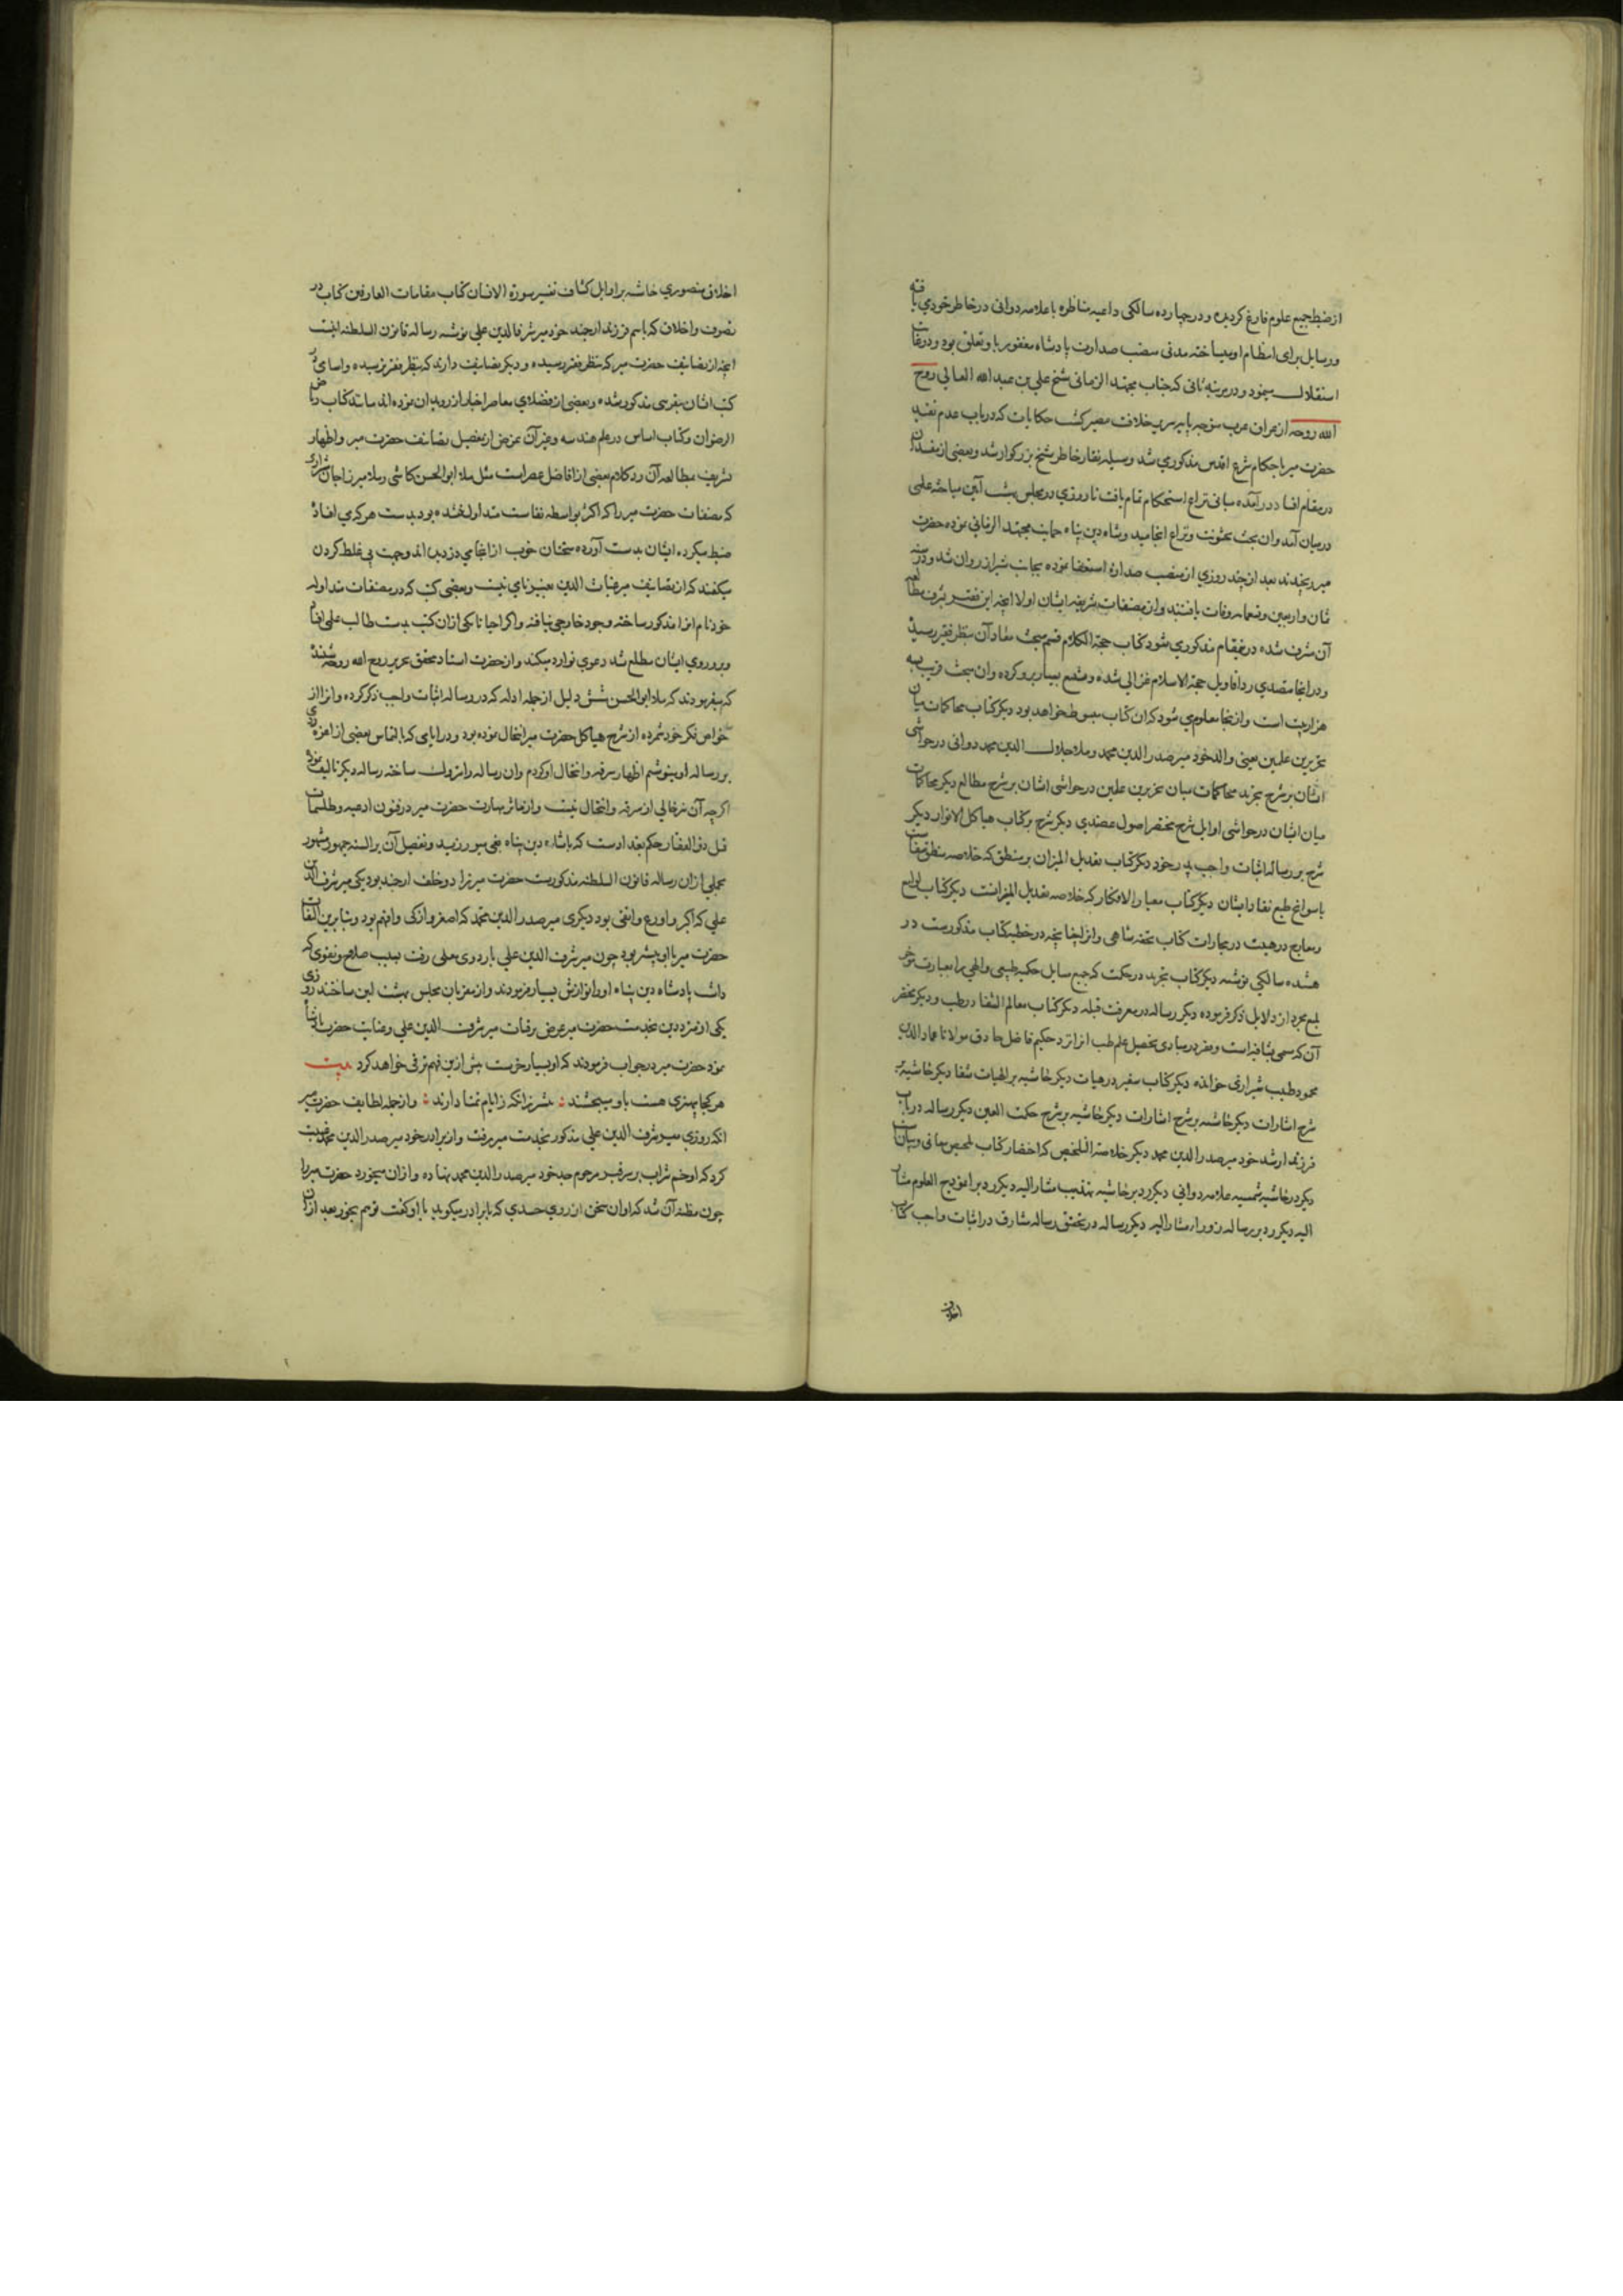 از ضبط جمیع علوم فارغ کردیده و در چهارده سالکی داعیه مناظره با علامه دوانی در خاطر خود می یافته
و رسایل برای انتظام او میساخته مدتی منصب صدارت پادشاه مغفور باو تعلق بود و در
استقلال مینمود و در مرتبه ثانی که جناب مجتهد الزمانی شیخ علی بن عبد العالی روح
الله روحه از عراق عرب متوجه پایه سریر خلافت مصیر کشت حکایات که در باب عدم تقید
حضرت میر باحکام شرع اقدس مذکور می شد وسیله نقار خاطر شیخ بزرکوار شد و بعضی از مفسدان
در مقام افساد درآمده مبانی نزاع استحکام تمام یافت تا روزی در مجلس بهشت آیین مباحثه علمی
در میان آمد و ان بحث بخشونت و نزاع انجامید و شاه دین پناه حمایت مجتهد الزمانی نموده حضرت
میر رنجیدند بعد از چند روزی از منصب صدارة استعفا نموده بجانب شیراز روان شد و در سنه
ثمان و اربعین و تسعمایه وفات یافتند و از مصنفات شریفه ایشان اولا انچه این فقیر بشرف مطالعه
آن مشرف شده درینمقام مذکور می شود کتاب حجة الکلام قسم مبحث معاد آن بنظر فقیر رسیده
و در انجا متصدی رد اقاویل حجة الاسلام غزالی شده و تشنیع بسیار برو کرده و ان مبحث قریب به
هزار بیت است و از انجا معلوم می شود که ان کتاب مبسوط خواهد بود دیکر کتاب محاکمات میان
نحریرین علمین یعنی والد خود میر صدر الدین محمد و ملا جلال الدین محمد دوانی در حواشی
ایشان بر شرح تجرید محاکمات میان نحریرین علمین در حواشی ایشان بر شرح مطالع دیکر محاکمات
میان ایشان در حواشی اوایل شرح مختصر اصول عضدی دیکر شرح بر کتاب هیاکل الانوار دیکر
شرح بر رسالۀ اثبات واجب پدر خود دیکر کتاب تعدیل المیزان بر منطق که خلاصه منطق شفاست
با سوانح طبع نقاد ایشان دیکر کتاب معیار الافکار که خلاصه تعدیل المیزانست دیکر کتاب لوامع
و معارج در هیئت در مجارات کتاب تحفه شاهی و انرا چنانچه در خطبه کتاب مذکورست در
هشده سالکی نوشته دیکر کتاب تجرید در حکمت که جمیع مسایل حکمیه طبیعی و الهی را بعبارت موجز
لیع مجرد از دلایل ذکر فرموده دیکر رساله در معرفت قبله دیکر کتاب معالم الشفا در طب و دیکر مختصر
آن که مسمی بشافیه است و میر در مبادی تحصیل علم طب انرا نزد حکیم فاضل حاذق مولانا عماد الدین
محمود طبیب شیرازی خوانده دیکر کتاب سفیر در هیات دیکر حاشیه بر الهیات شفا دیکر حاشیه بر
شرح اشارات دیکر حاشیه بر شرح اشارات دیکر حاشیه بر شرح حکمت العین دیکر رساله در باب
فرزند ارشد خود میر صدر الدین محمد دیکر خلاصة التلخیص که اختصار کتاب تلخیص معانی و بیان
دیکر رد حاشیه شمسیه علامه دوانی دیکر رد بر حاشیه تهذیب مشار الیه دیکر رد بر انموذج العلوم مشار
الیه دیکر رد بر رساله زوراء مشار الیه دیکر رساله در تحقیق رساله مشارق در اثبات واجب کتاب
اخلاق
اخلاق منصوری حاشیه بر اوایل کشاف تفسیر سورة الانسان کتاب مقامات العارفین کتاب در
تصوف و اخلاق که باسم فرزند ارجمند خود میر شرف الدین علی نوشته رساله قانون السلطنه اینست
انچه از تصانیف حضرت میر که بنظر فقیر رسیده و دیکر تصانیف دارند که بنظر فقیر نرسیده و اسامی در
کتب ایشان بتقریبی مذکور شده و بعضی از فضلای معاصر اخبار از رویت ان نموده اند مانند کتاب ریاض
الرضوان و کتاب اساس در علم هندسه و غیر آن غرض از تفصیل تصانیف حضرت میر و اظهار
تشریف مطالعه آن رد کلام بعضی از افاضل عصر است مثل ملا ابو الحسن کاشی و ملا میرزا جان شیرازی
که مصنفات حضرت میر را که اکثر بواسطه نفاست متداول نشده بود بدست هر که می افتاد
ضبط میکرد ایشان بدست آورده سخنان خوب از انجا می دزدیده اند و جهت پی غلط کردن
میکفتند که از تصانیف میر غیاث الدین بغیر نامی نیست و بعضی کتب که در مصنفات متداوله
خود نام انرا مذکور ساخته وجود خارجی نیافته و اکر احیانا یکی از ان کتب بدست طالب علمی افتادی
و بر دزدی ایشان مطلع شد دعوی توارد میکند و از حضرت استاد محقق نحریر روح الله روحه شنیده
که میفرمودند که ملا ابو الحسن شش دلیل از جمله ادله که در رساله اثبات واجب ذکر کرده و انرا از
خواص فکر خود شمرده از شرح هیاکل حضرت میر انتحال نموده بود و در ایامی که بالتماس بعضی از اعزه ردی
بر رساله او مینوشتم اظهار سرقه و انتحال او کردم و ان رساله را متروک ساخته رساله دیکر تالیف نموده
اکرچه آن نیز خالی از سرقه و انتحال نیست و از مآثر مهارت حضرت میر در فنون ادعیه و طلسمات
قتل ذو الفقار حاکم بغداد است که باشاره دین پناه بفی میر رزید و تفصیل آن بر السنه جمهور مشهور
مجملی از ان رساله قانون السلطنه مذکورست حضرت میر را دو خلف ارجمند بود یکی میر شرف الدین
علی که اکبر و اورع و اتقی بود دیکری میر صدر الدین محمد که اصغر و ازکی و افهم بود و بنابرین التفات
حضرت میر باو بیشتر بود چون میر شرف الدین علی باردوی معلی رفت بسبب صلاح و تقوی که
داشت پادشاه دین پناه او را نوازش بسیار فرمودند و از مقربان مجلس بهشت آیین ساختند روزی
یکی از مترددین بخدمت حضرت میر عرض ترقیات میر شرف الدین علی و عنایت حضرت پادشاه
نمود حضرت میر در جواب فرمودند که او بسیار خرست بیش ازین هم ترقی خواهد کرد بیت
هر کجا بهتری هست باو میبخشند : بیشتر زانکه ز ایام تمنا دارند : و از جمله لطایف حضرت میر
انکه روزی میر شرف الدین علی مذکور بخدمت میر رفت و از برادر خود میر صدر الدین محمد غیبت
کرد که او خم شراب بر سر قبر مرحوم جد خود میر صدر الدین محمد نهاده و از ان میخورد حضرت میر را
چون مظنه آن شد که او ان سخن از روی حسدی که با برادر میکوید باو کفت تو هم بخور بعد از ان